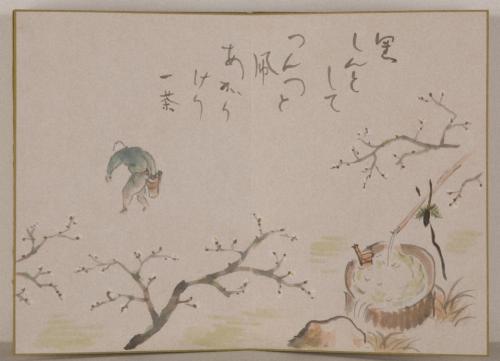 里
しんと
して
つんつと
凧
あかり
けり
一茶